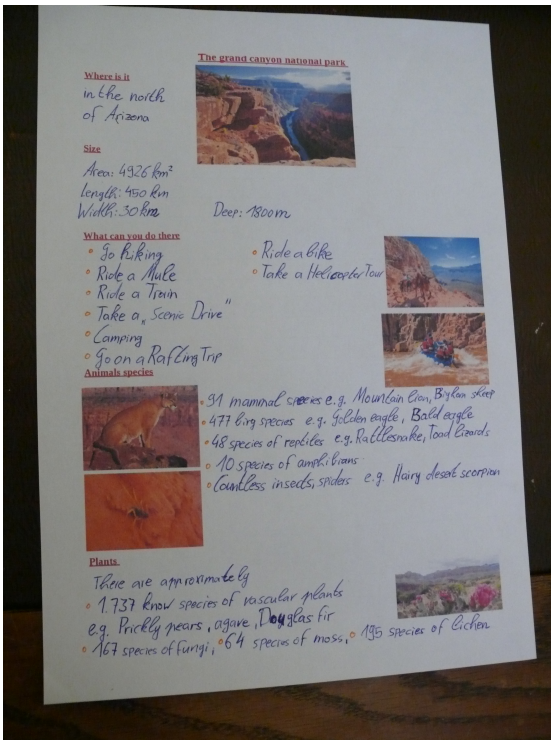 The grand canyon national park
Where is it
in the north
of Arizona
Size
Area: 4926 km²
Length: 450 km
Width: 30 km
Deep: 1800m
What can you do there
Go hiking
Ride a Mule
Ride a Train
Take a „Scenic Drive"
Camping
Go on a Rafting Trip
Ride a bike
Take a Helicopter Tour
Animals species
91 mammal species e.g. Mountain lion, Bighorn sheep
477 birg species e.g. Golden eagle, Bald eagle
48 species of reptiles e.g. Rattlesnake, Toad lizards
10 species of amphibians
Countless insects, spiders e.g. Hairy desert scorpion
Plants
There are approximately
1.737 know species of vascular plants
e.g. Prickly pears, agave, Douglas fir
167 species of fungi, 64 species of moss, 195 species of lichen